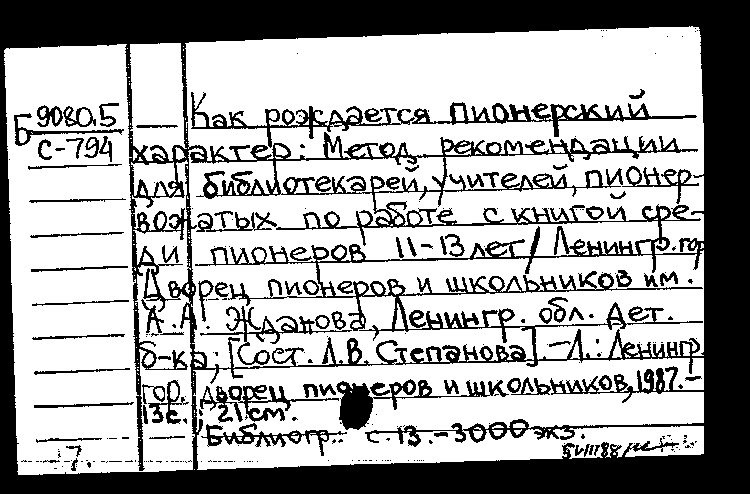 Б 9080.5
С-794
Как рождается пионерский
характер: Метод. рекомендации
для библиотекарей, учителей, пионер-
вожатых по работе с книгой сре-
ди пионеров 11-13 лет / Ленингр. гор.
Дворец пионеров и школьников им.
А.А. Жданова, Ленингр. обл. дет.
б-ка; [Сост. Л.В. Степанова]. - Л.: Ленингр.
гор. дворец пионеров и школьников, 1987. -
13 с.; 21 см.
Библиогр.: с. 13. - 3000 экз.
5 VIII 88
17.